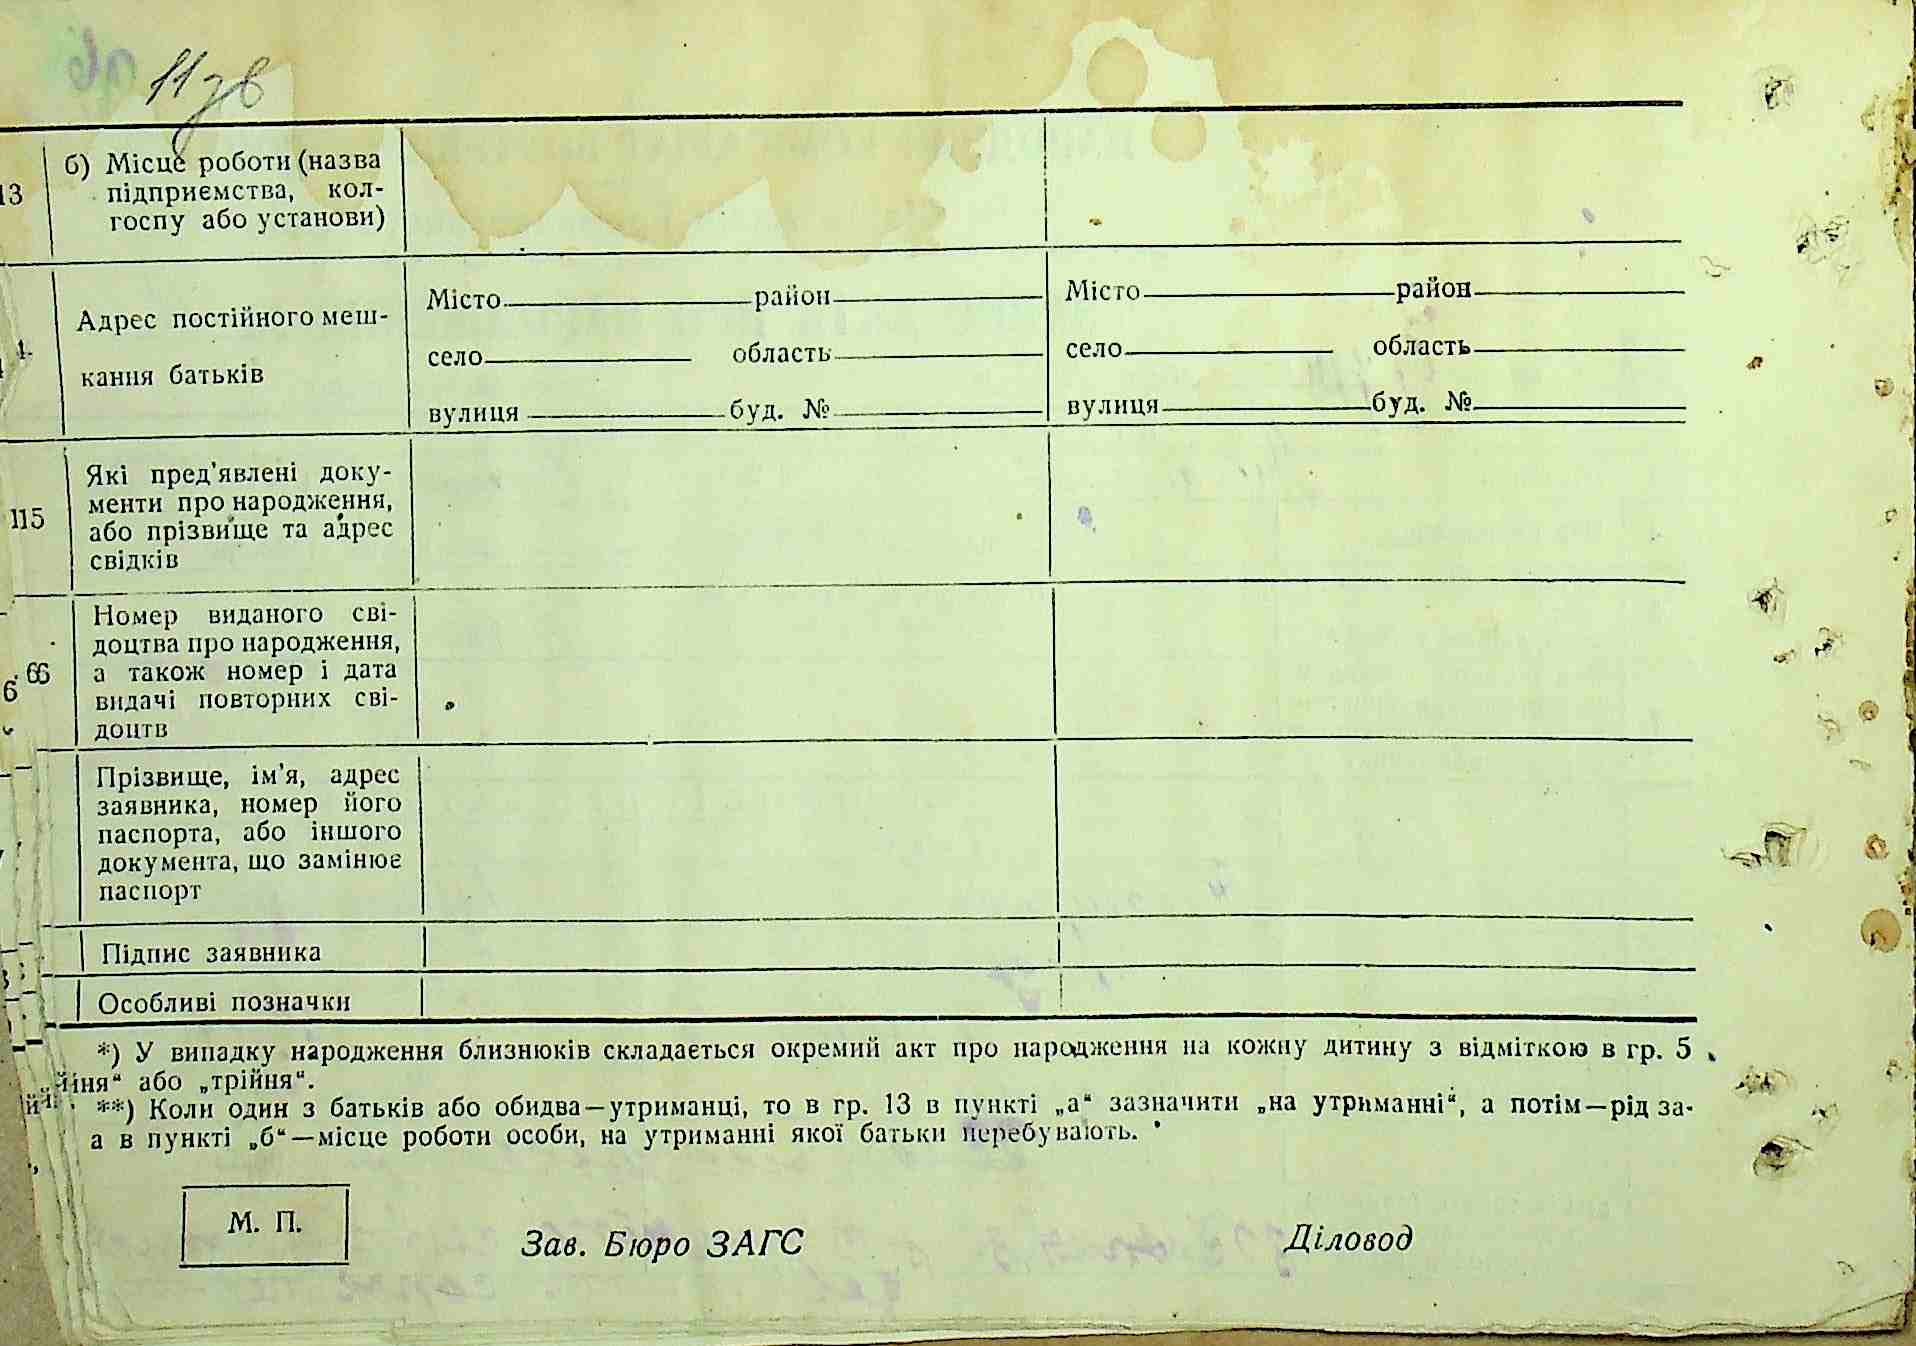 11зв
13 б) Місце роботи (назва
підприємства, кол-
госпу або установи)
Адрес постійного меш-
кання батьків
Місто район
село область
вулиця буд. №
Місто район
село область
вулиця буд. №
115 Які пред'явлені доку-
менти про народження,
або прізвище та адрес
свідків
66 Номер виданого сві-
доцтва про народження,
а також номер і дата
видачі повторних сві-
доцтв
Прізвище, ім'я, адрес
заявника, номер його
паспорта, або іншого
документа, що замінює
паспорт
Підпис заявника
Особливі позначки
*) У випадку народження близнюків складається окремий акт про народження на кожну дитину з відміткою в гр. 5
йня“ або „трійня“.
**) Коли один з батьків або обидва—утриманці, то в гр. 13 в пункті „а“ зазначити „на утриманні“, а потім—рід за-
а в пункті „б“—місце роботи особи, на утриманні якої батьки перебувають.
М. П.
Зав. Бюро ЗАГС Діловод